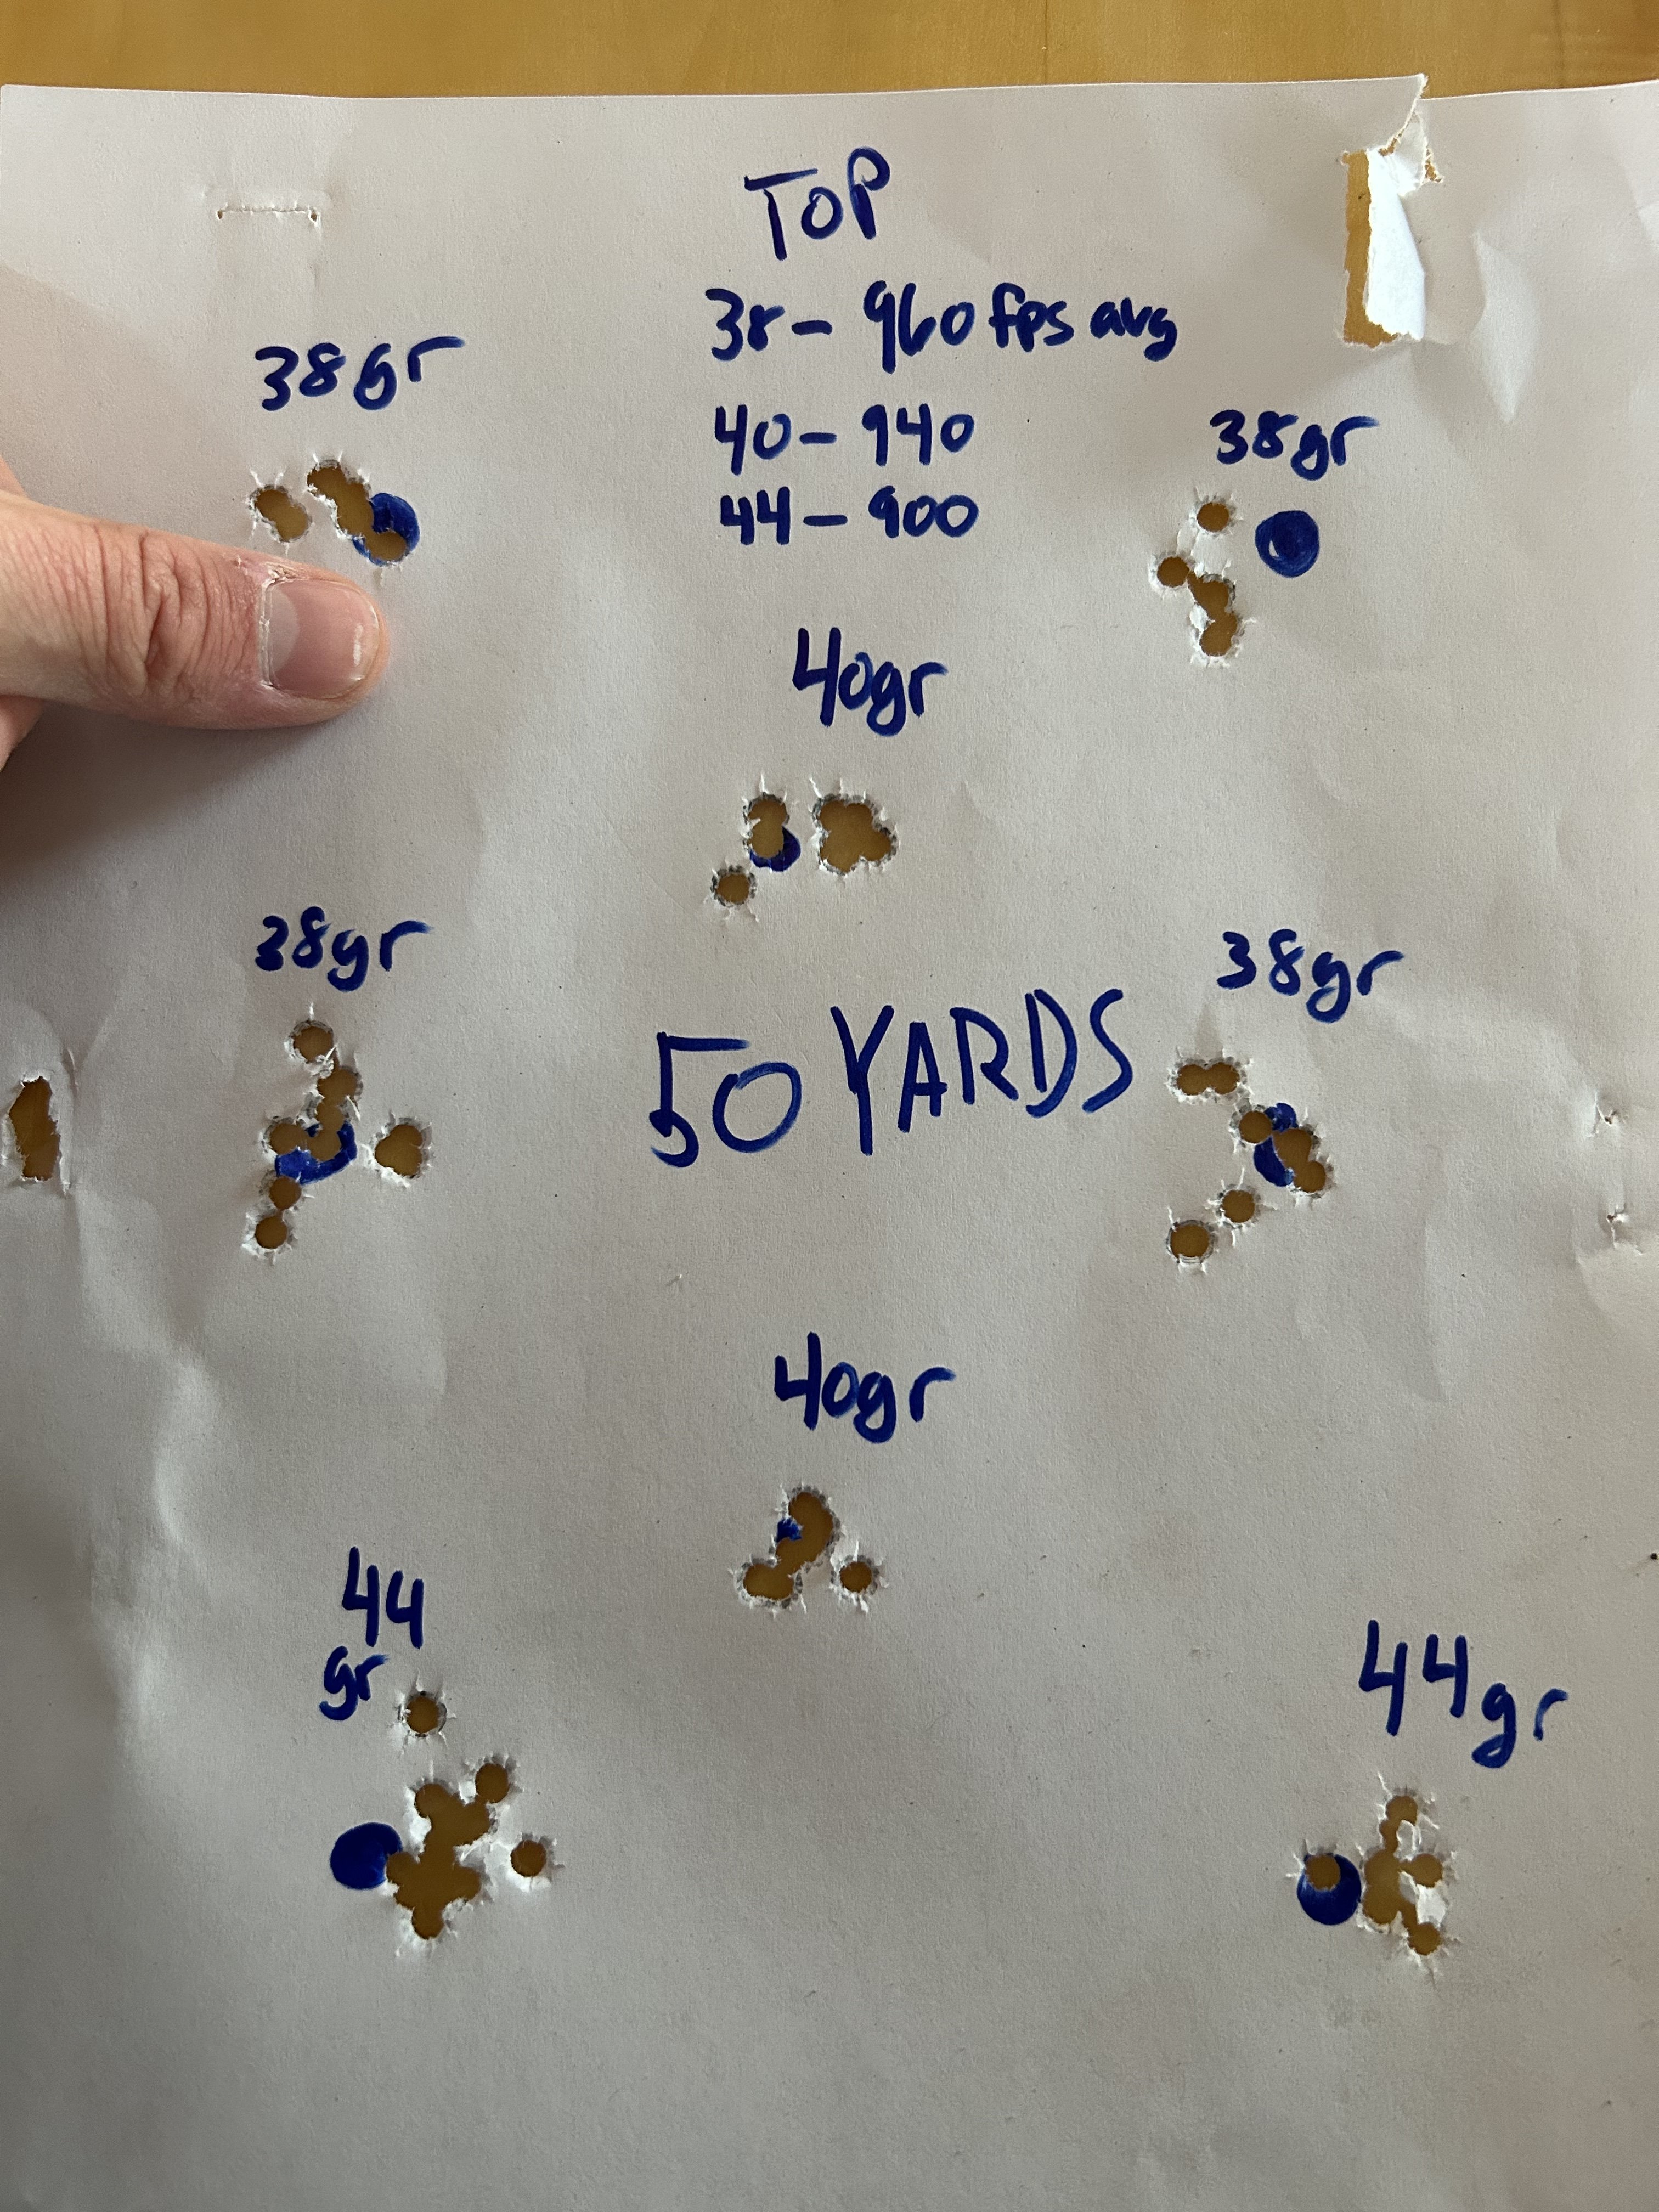 TOP
38 - 960 fps avg
40 - 940
44 - 900
38gr
38gr
40gr
38gr
38gr
50 YARDS
40gr
44
gr
44gr